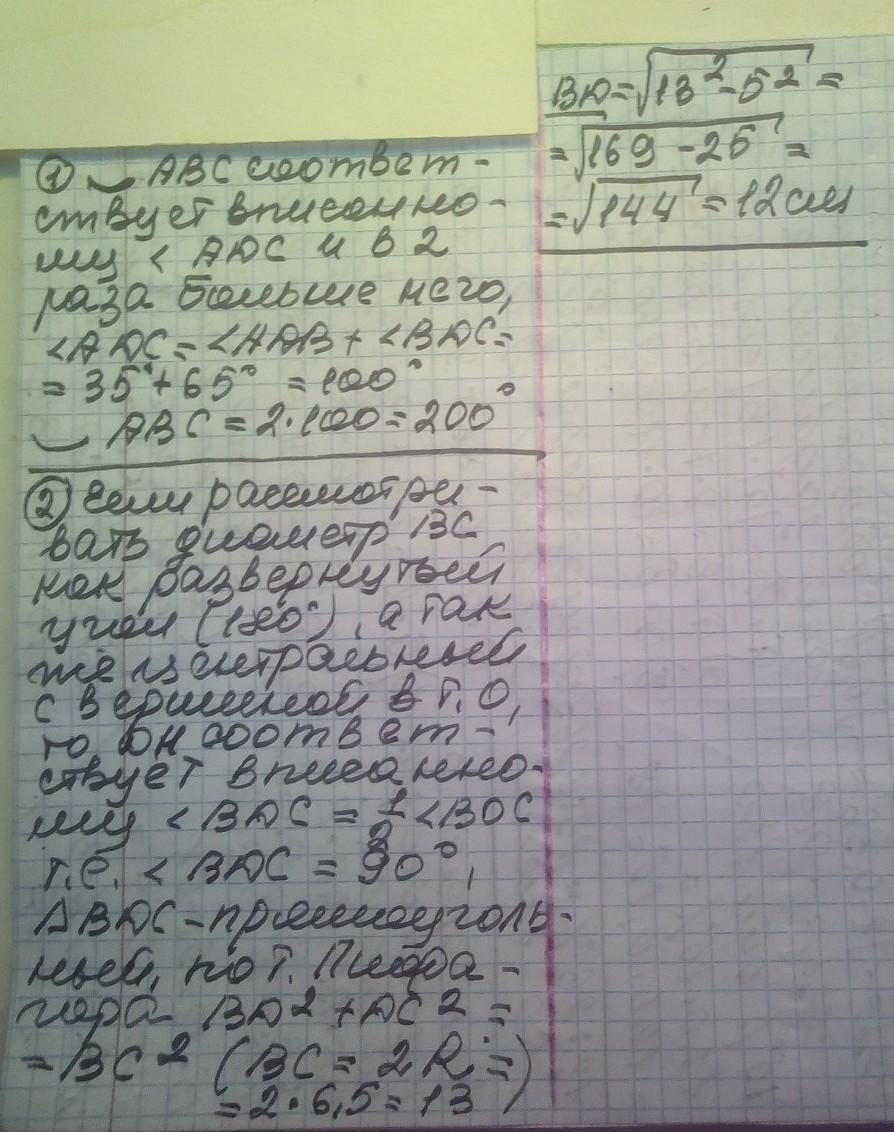 ① ◡ ABC соответ-
ствует вписанно-
му < ADC и в 2
раза больше него,
<ADC = <ADB + <BDC =
= 35° + 65° = 100°
◡ ABC = 2·100 = 200°
② Если рассматри-
вать диаметр BC
как развернутый
угол (180°), а так
же центральный
с вершиной в т. O,
то он соответ-
ствует вписанно-
му < BDC = 1/2 <BOC
т.е. < BDC = 90°,
ΔBDC - прямоуголь-
ный, по т. Пифа-
гора BD² + DC² =
= BC² (BC = 2R =
= 2·6,5 = 13)
BD = √13² - 5² =
= √169 - 25 =
= √144 = 12 см